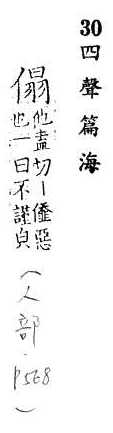 30四聲篇海
傝他盍切丨㒎惡
也一曰不謹皃
(人部.P568)